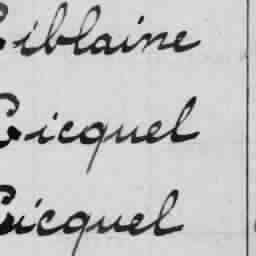 Giblaine
Gicquel
Gicquel